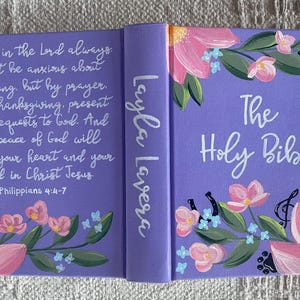 in the Lord always
t be anxious about
ng, but by prayer,
hanksgiving, present
equests to God. And
peace of God will
your heart and your
d in Christ Jesus.
Philippians 4:4-7
Layla Lavera
The
Holy Bib